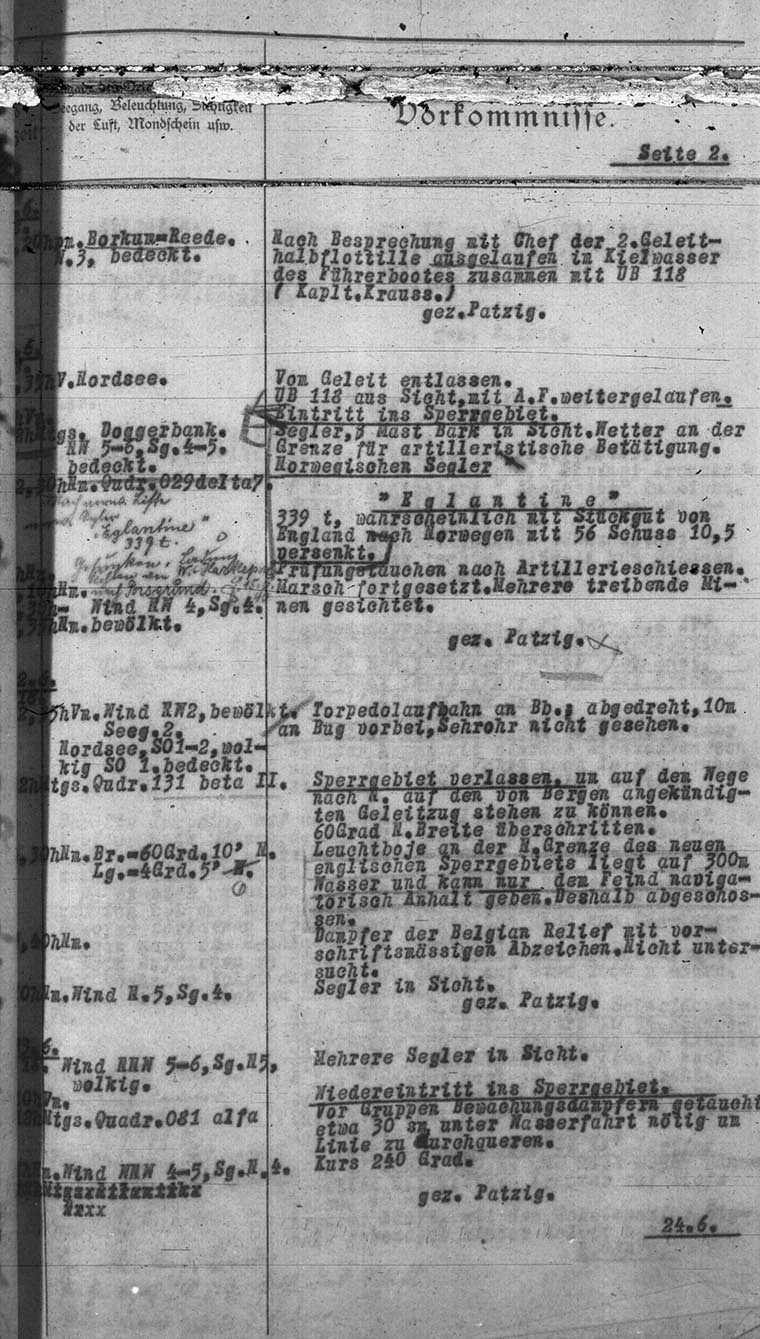 Seegang, Beleuchtung, Sichtigkeit
der Luft, Mondschein usw.
Vorkommnisse.
zeit
Seite 2.
6.
hpm. Borkum-Reede.
N.3, bedeckt.
Nach Besprechung mit Chef der 2.Geleit-
halbflottille ausgelaufen in Kielwasser
des Führerbootes zusammen mit UB 118
( Kaplt.Krauss.)
gez.Patzig.
6.
hV.Nordsee.
Vom Geleit entlassen.
UB 118 aus Sicht,mit A.F.weitergelaufen.
hVm.
Eintritt ins Sperrgebiet.
hMtgs. Doggerbank.
NW 5-6,Sg.4-5.
bedeckt.
Segler,3 Mast Bark in Sicht.Wetter an der
Grenze für artilleristische Betätigung.
Norwegischen Segler
hNm.Qudr.029delta7.
"Eglantine"
339 t.
" E g l a n t i n e "
339 t, wahrscheinlich mit Stückgut von
England nach Norwegen mit 56 Schuss 10,5
versenkt.
hNm.
Prüfungstauchen nach Artillerieschiessen.
hNm.
Marsch fortgesetzt.Mehrere treibende Mi-
nen gesichtet.
Wind NW 4,Sg.4.
hNm.bewölkt.
gez. Patzig.
hVm.Wind NW2,bewölkt.
Seeg.2.
Nordsee,SO1-2,wol-
kig SO 1.bedeckt.
Torpedolaufbahn an Bb., abgedreht,10m
an Bug vorbei,Sehrohr nicht gesehen.
hMtgs.Qudr.131 beta II.
Sperrgebiet verlassen, um auf dem Wege
nach N. auf den von Bergen angekündig-
ten Geleitzug stehen zu können.
60Grad N.Breite überschritten.
hNm.Br.=60Grd.10' N.
Lg.=4Grd.5' W.
O
Leuchtboje an der N.Grenze des neuen
englischen Sperrgebiets liegt auf 300m
Wasser und kann nur dem Feind naviga-
torisch Anhalt geben.Deshalb abgeschos-
sen.
hNm.
Dampfer der Belgian Relief mit vor-
schriftsmässigen Abzeichen.Nicht unter-
sucht.
hNm.Wind N.5,Sg.4.
Segler in Sicht.
gez. Patzig.
6.
Wind NNW 5-6,Sg.N5,
wolkig.
Mehrere Segler in Sicht.
hVm.
Wiedereintritt ins Sperrgebiet.
hMtgs.Quadr.081 alfa
Vor Gruppen Bewachungsdampfern getaucht
etwa 30 sm unter Wasserfahrt nötig um
Linie zu durchqueren.
Kurs 240 Grad.
hNm.Wind NNW 4-5,Sg.N.4.
gez. Patzig.
24.6.